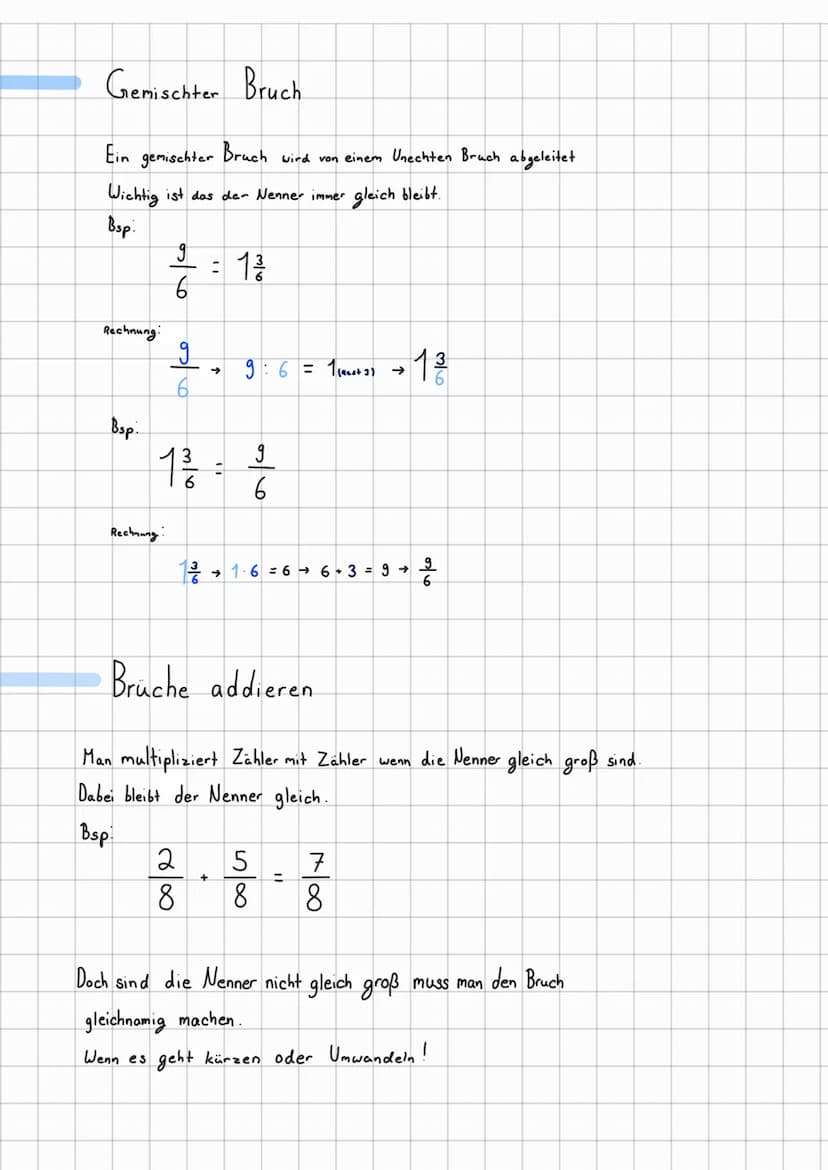 Gemischter Bruch
Ein gemischter Bruch wird von einem Unechten Bruch abgeleitet
Wichtig ist das der Nenner immer gleich bleibt.
Bsp:
9/6 = 1 3/6
Rechnung:
9/6 → 9 : 6 = 1 (Rest 3) → 1 3/6
Bsp:
1 3/6 = 9/6
Rechnung:
1 3/6 → 1 · 6 = 6 → 6 + 3 = 9 → 9/6
Brüche addieren
Man multipliziert Zähler mit Zähler wenn die Nenner gleich groß sind.
Dabei bleibt der Nenner gleich.
Bsp:
2/8 + 5/8 = 7/8
Doch sind die Nenner nicht gleich groß muss man den Bruch
gleichnamig machen.
Wenn es geht kürzen oder Umwandeln!